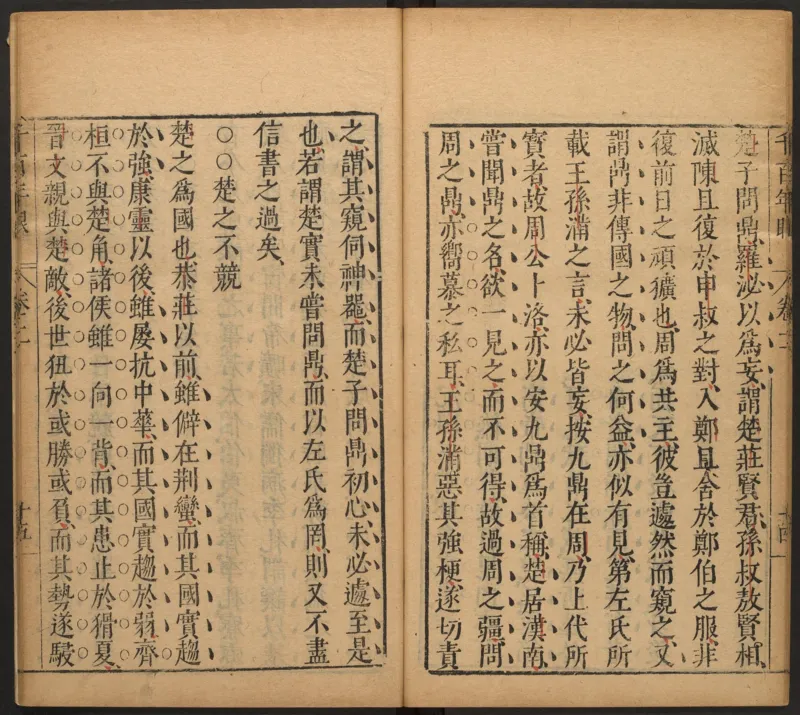 千百年眼 卷二 十四
楚子問鼎羅泌以爲妄謂楚莊賢君孫叔敖賢相
滅陳且復於申叔之對入鄭且舍於鄭伯之服非
復前日之頑獷也周爲共主彼豈遽然而窺之又
謂鼎非傳國之物問之何益亦似有見第左氏所
載王孫滿之言未必皆妄按九鼎在周乃上代所
寳者故周公卜洛亦以安九鼎爲首稱楚居漢南
嘗聞鼎之名欲一見之而不可得故過周之疆問
周之鼎亦嚮慕之私耳王孫滿惡其強梗遂切責
之謂其窺伺神器而楚子問鼎初心未必遽至是
也若謂楚實未嘗問鼎而以左氏爲罔則又不盡
信書之過矣
○○楚之不競
楚之爲國也恭莊以前雖僻在荆蠻而其國實趨
於強康靈以後雖屡抗中華而其國實趨於弱齊
桓不與楚角諸侯雖一向一背而其患止於猾夏
晋文親與楚敵後世狃於或勝或負而其勢遂駸
千百年眼 卷二 十五